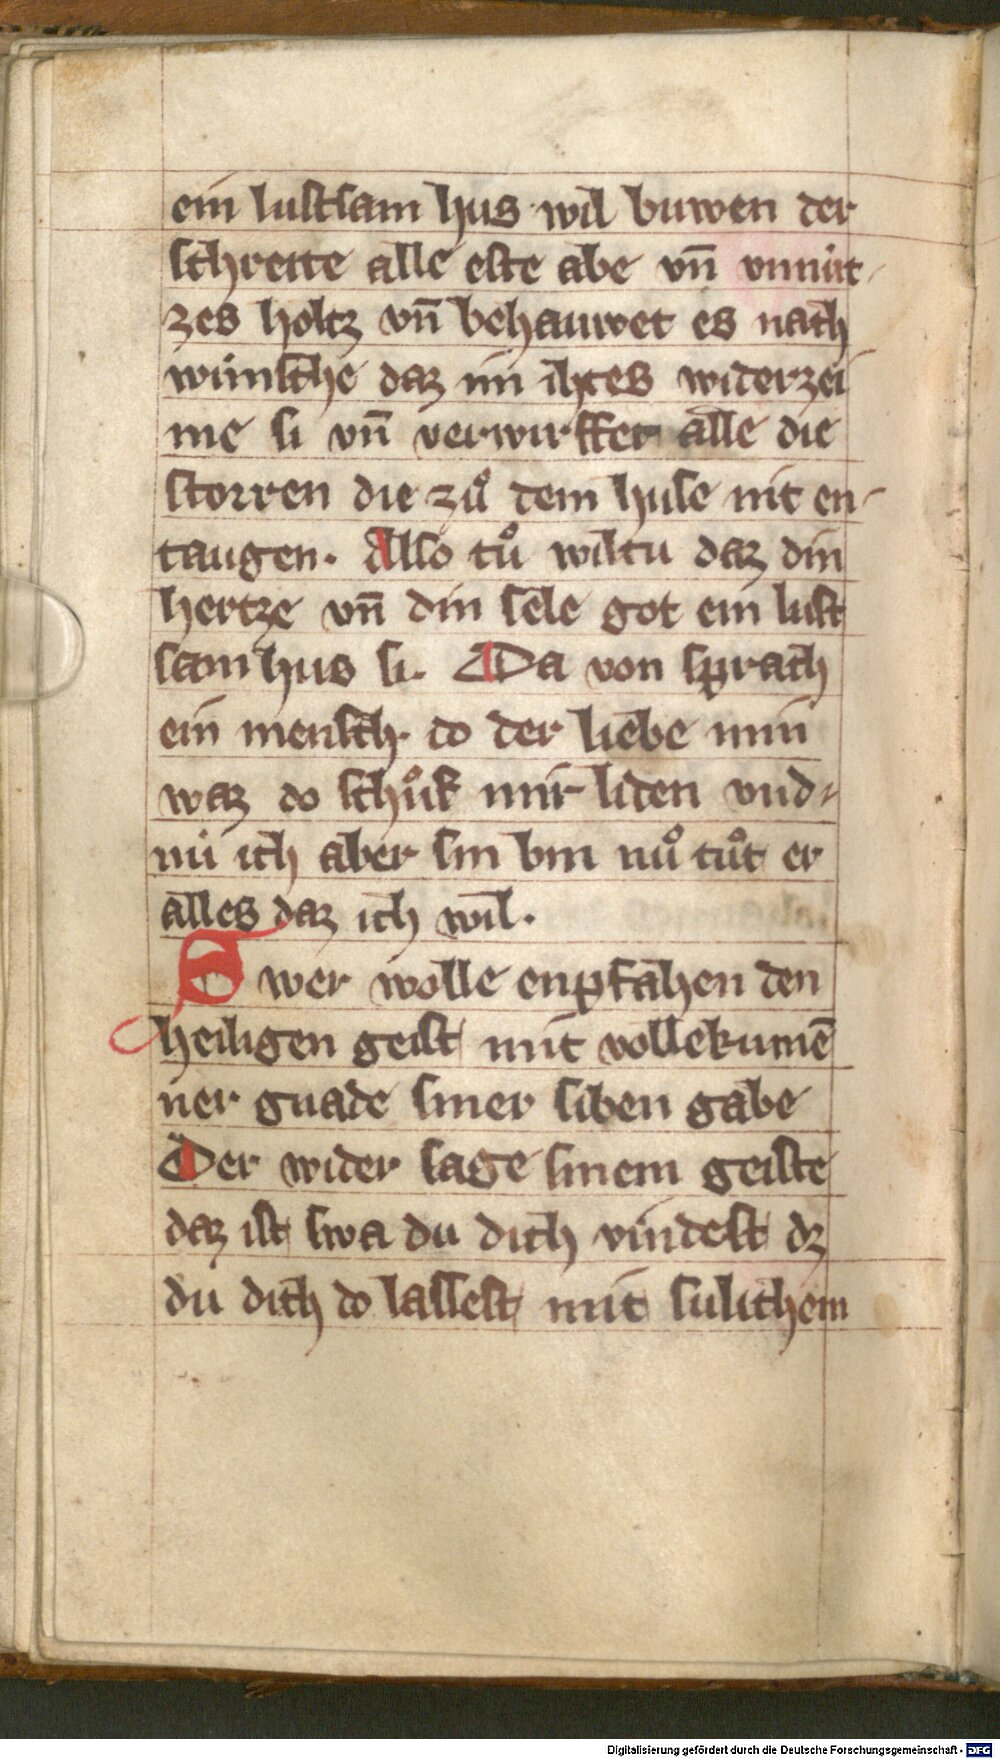 ein lustsam hus wil buwen der
schrette alle este abe vn̄ vnnút-
zes holtz vn̄ behauwet es nach
wúnsche daz im ihtes widerzei
me si vn̄ verwirffet alle die
storren die zuͦ dem huse nit en-
taugen. Also tuͦ wiltu daz din
hertze vn̄ din sele got ein lust
sam hus si. Da von sprach
ein mensch. do der liebe min
waz do schuͦf mir liden vnd-
nu ich aber sin bin nuͦ tuͦt er
alles daz ich wil.
Swer wolle enpfahen den
heiligen geist mit vollekumē
ner gnade siner siben gabe
Der wider sage sinem geiste
daz ist swa du dich vindest dz
du dich do lassest mit sulichem
Digitalisierung gefördert durch die Deutsche Forschungsgemeinschaft - DFG